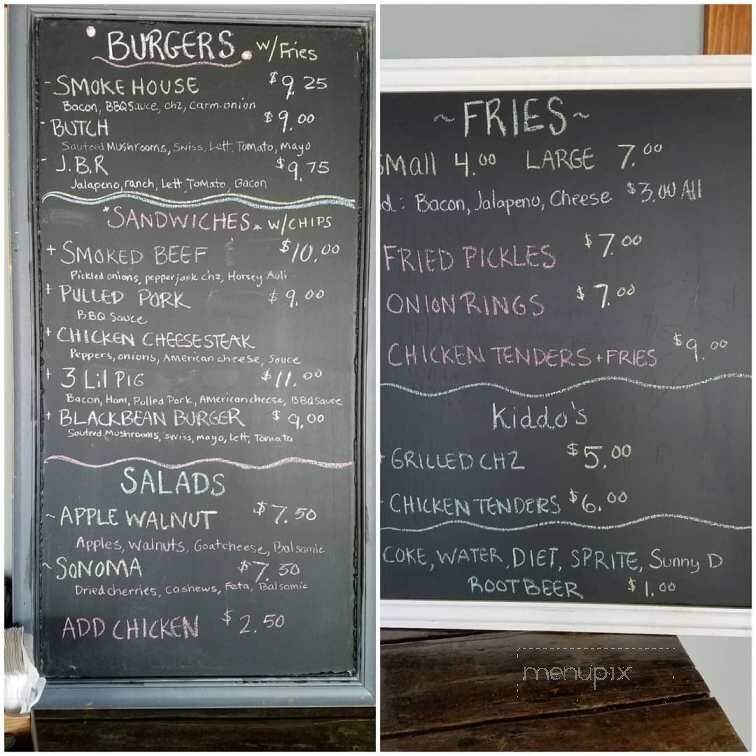 BURGERS w/Fries
- SMOKE HOUSE $9.25
Bacon, BBQ Sauce, chz, Carm.onion
- BUTCH $9.00
Sauteed Mushrooms, Swiss, Lett, Tomato, Mayo
- J.B.R $9.75
Jalapeno, ranch, Lett, Tomato, Bacon
SANDWICHES W/CHIPS
+ SMOKED BEEF $10.00
Pickled onions, pepperjack chz, Horsey Aoli
+ PULLED PORK $9.00
BBQ Sauce
+ CHICKEN CHEESESTEAK
Peppers, onions, American cheese, Sauce
+ 3 Lil PIG $11.00
Bacon, Ham, Pulled Pork, American cheese, BBQ Sauce
+ BLACKBEAN BURGER $9.00
Sauteed Mushrooms, swiss, mayo, lett, Tomato
SALADS
~ APPLE WALNUT $7.50
Apples, Walnuts, Goatcheese, Balsamic
~ SONOMA $7.50
Dried cherries, Cashews, Feta, Balsamic
ADD CHICKEN $2.50
~ FRIES ~
Small 4.00 LARGE 7.00
d: Bacon, Jalapeno, Cheese $3.00 All
FRIED PICKLES $7.00
ONION RINGS $7.00
CHICKEN TENDERS + FRIES $9.00
Kiddo's
+ GRILLED CHZ $5.00
- CHICKEN TENDERS $6.00
COKE, WATER, DIET, SPRITE, Sunny D
ROOTBEER $1.00
menupix